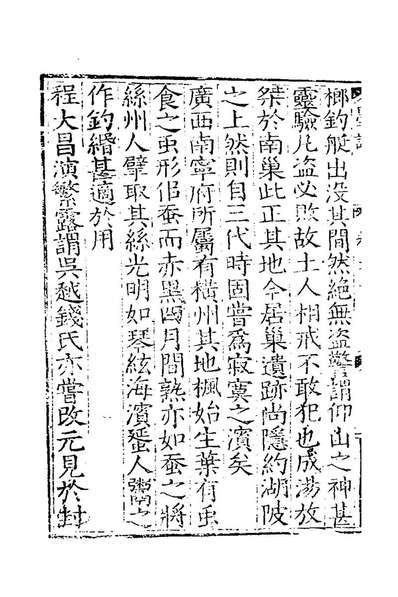 榔釣艇出没其間然絶無盗警謂仰山之神甚
靈驗凡盗必敗故土人相戒不敢犯也成湯放
桀於南巢此正其地今居巢遺跡尚隱約湖陂
之上然則自三代時固嘗爲寂寞之濱矣
廣西南寧府所屬有横州其地楓始生葉有虫
食之虫形佀蚕而赤黑四月間熟亦如蚕之將
絲州人擘取其絲光明如琴絃海濱蜑人鬻之
作釣緡甚適於用
程大昌演繁露謂吳越錢氏亦嘗改元見於封